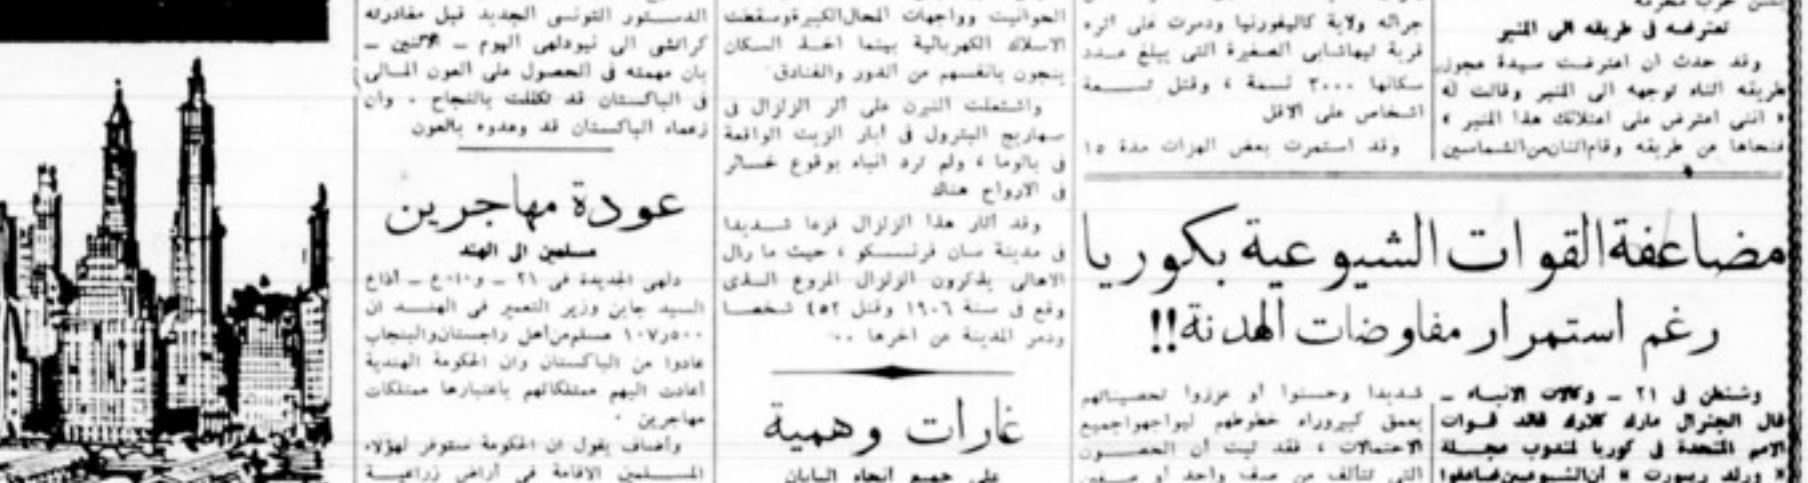 تعترضه في طريقه الى المنبر
وقد حدث ان اعترضت سيدة عجوز
طريقه اثناء توجهه الى المنبر وقالت له
« انني اعترض على اعتلائك هذا المنبر »
فنحاها من طريقه وقام اثنان من الشماسين
جرائه ولاية كاليفورنيا ودمرت على اثره
قرية تيهاشابي الصغيرة التي يبلغ عدد
سكانها ٣٠٠٠ نسمة ، وقتل تسعة
اشخاص على الاقل
وقد استمرت بعض الهزات مدة ١٥
مضاعفة القوات الشيوعية بكوريا
رغم استمرار مفاوضات الهدنة!!
وشنطن في ٢١ ــ وكالات الانباء ــ
قال الجنرال مارك كلارك قائد قوات
الامم المتحدة في كوريا لمندوب مجلة
« ورلد ريبورت » ان الشيوعيين ضاعفوا
شديدا وحسنوا أو عززوا تحصيناتهم
بعمق كبير وراء خطوطهم ليواجهوا جميع
الاحتمالات ، فقد ثبت أن الحصون
التي تتألف من صف واحد أو صفين
الحوانيت وواجهات المحال الكبيرة وسقطت
الاسلاك الكهربائية بينما اخذ السكان
ينجون بانفسهم من الدور والفنادق
واشتعلت النيرن على أثر الزلزال في
صهاريج البترول في آبار الزيت الواقعة
في بالوما ، ولم ترد انباء بوقوع خسائر
في الارواح هناك
وقد آثار هذا الزلزال فزعا شديدا
في مدينة سان فرنسسكو ، حيث ما زال
الاهالي يذكرون الزلزال المروع الذي
وقع في سنة ١٩٠٦ وقتل ٤٥٢ شخصا
ودمر المدينة عن آخرها ..
غارات وهمية
على جميع انحاء اليابان
الدستور التونسي الجديد قبل مغادرته
كراتشي الى نيودلهي اليوم ــ الاثنين ــ
بان مهمته في الحصول على العون المالي
في الباكستان قد تكللت بالنجاح . وان
زعماء الباكستان قد وعدوه بالعون
عودة مهاجرين
مسلمين الى الهند
دلهي الجديدة في ٢١ ــ و.ا.ع ــ أذاع
السيد جاين وزير التعمير في الهند ان
١٠٧٫٥٠٠ مسلم من أهل راجستان والبنجاب
عادوا من الباكستان وان الحكومة الهندية
أعادت اليهم ممتلكاتهم باعتبارها ممتلكات
مهاجرين .
وأضاف يقول ان الحكومة ستوفر لهؤلاء
المسلمين الاقامة في أراض زراعية